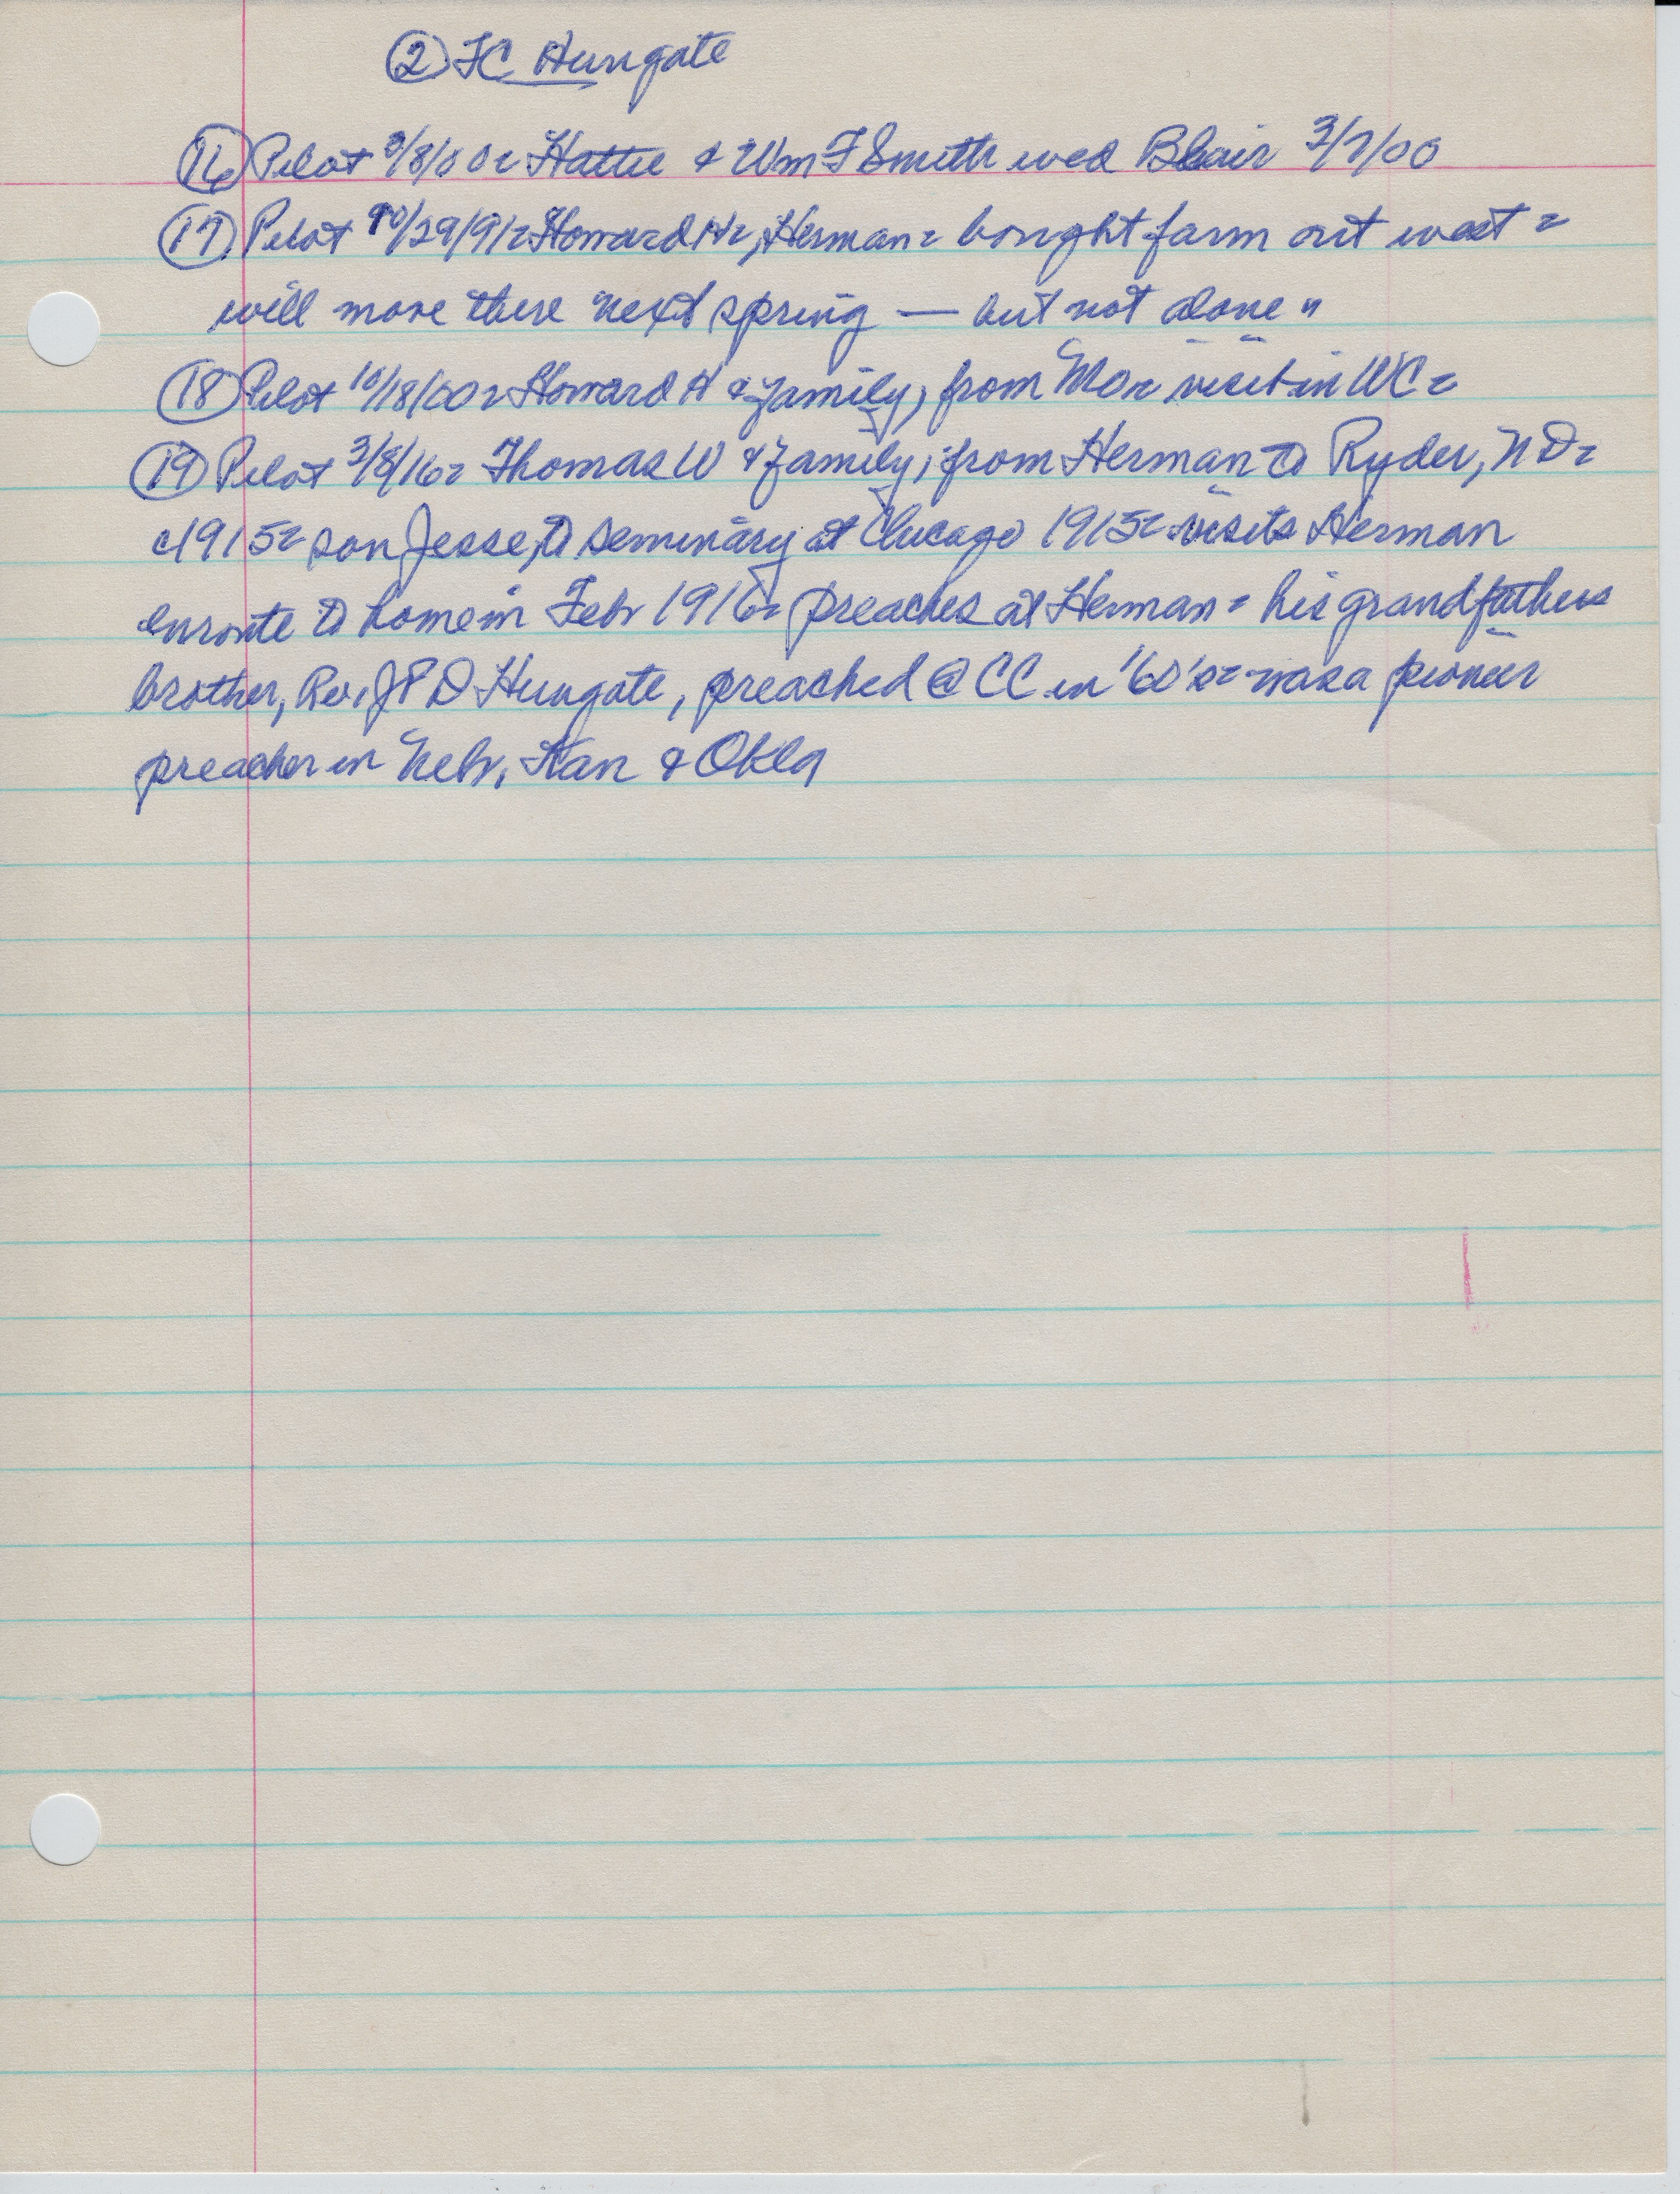 ② FC Hungate
⑯ Pilot 3/8/00= Hattie & Wm F Smith wed Blair 3/7/00
⑰ Pilot 10/29/91= Howard H=, Herman= bought farm out west =
will move there next spring — but not alone "
⑱ Pilot 10/18/00= Howard H & family, from Mo= visit in WC=
⑲ Pilot 3/8/16= Thomas W & family, from Herman to Ryder, ND=
c1915= son Jesse, to seminary at Chicago 1915= visits Herman
enroute to home in Feb 1916= preaches at Herman = his grandfathers
brother, Rev. J P D Hungate, preached @ CC in '60's= was a pioneer
preacher in Neb, Kan & Okla